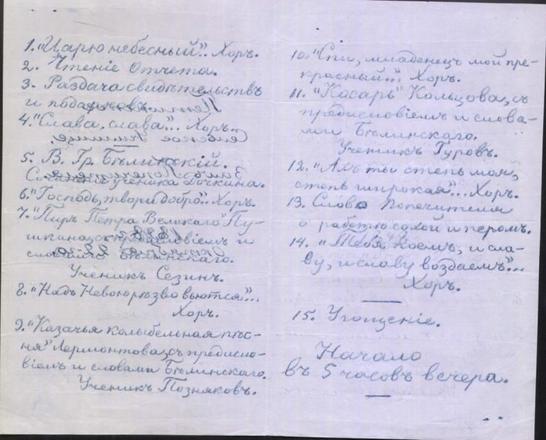 1. "Царю небесный"... Хоръ.
2. Чтеніе Отчета.
3. Раздача свидѣтельствъ
и подарковъ.
4. "Слава, слава"... Хоръ.
5. В. Гр. Бѣлинскій.
ученика
6. "Господь, твори добро". Хоръ.
7. "Пиръ Петра Великаго" Пу-
шкина, съ предисловіемъ и
словами Бѣлинскаго.
Ученикъ Сезинъ.
8. "Надъ Невою рѣзво вьются"...
Хоръ.
9. "Казачья колыбельная пѣс-
ня" Лермонтова, съ предисло-
віемъ и словами Бѣлинскаго.
Ученикъ Позняковъ.
10. "Спи, младенецъ мой пре-
красный"... Хоръ.
11. "Косарь" Кольцова, съ
предисловіемъ и слова-
ми Бѣлинскаго.
Ученикъ Гуровъ.
12. "Ахъ ты степь моя,
степь широкая"... Хоръ.
13. Слово попечителя
о работѣ сохой и перомъ.
14. "Тебя поемъ, и сла-
ву, и славу воздаемъ"...
Хоръ.
15. Угощеніе.
Начало
въ 5 часовъ вечера.